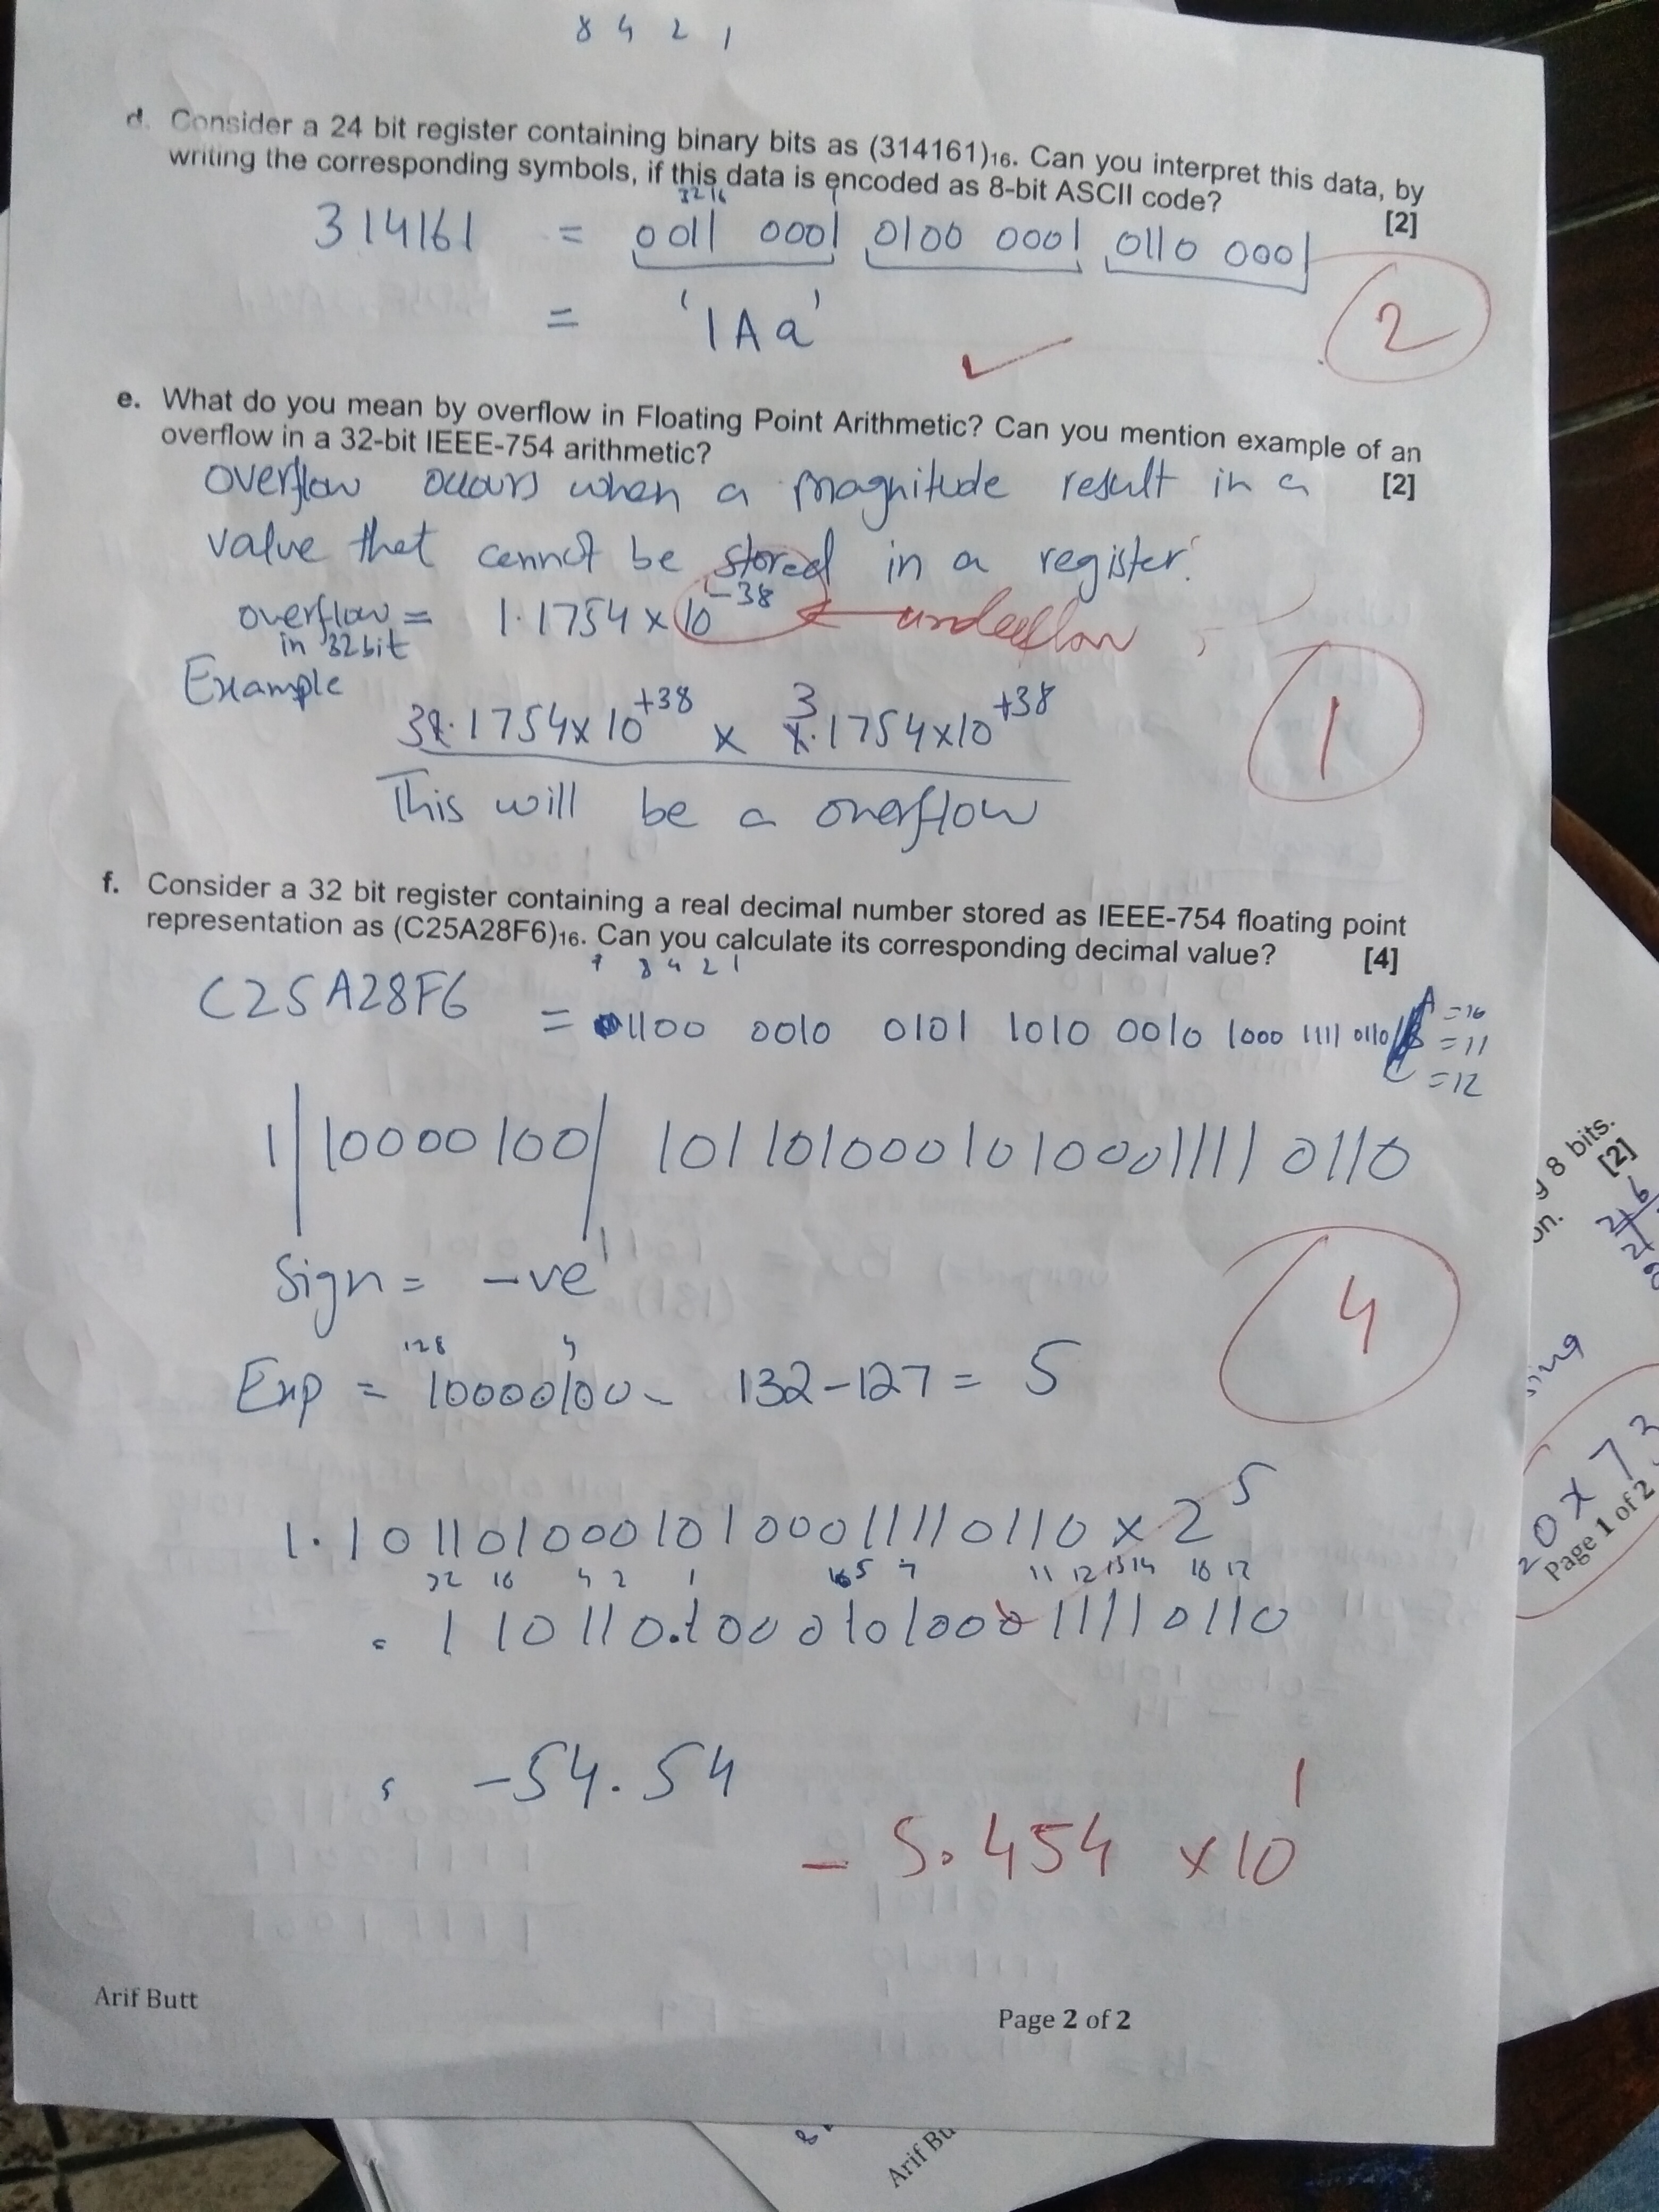 8 4 2 1
d. Consider a 24 bit register containing binary bits as (314161)₁₆. Can you interpret this data, by
writing the corresponding symbols, if this data is encoded as 8-bit ASCII code?
[2]
32 16 1
314161 = 0011 0001 0100 0001 0110 0001
2
= '1Aa'
e. What do you mean by overflow in Floating Point Arithmetic? Can you mention example of an
overflow in a 32-bit IEEE-754 arithmetic?
[2]
overflow occurs when a magnitude result in a
value that cannot be stored in a register.
overflow = 1.1754 x 10⁻³⁸ underflow
in 32 bit
Example
1
.1754x10⁺³⁸ x 3.1754x10⁺³⁸
This will be a overflow
f. Consider a 32 bit register containing a real decimal number stored as IEEE-754 floating point
representation as (C25A28F6)₁₆. Can you calculate its corresponding decimal value? [4]
8 4 2 1
C25A28F6 = 1100 0010 0101 1010 0010 1000 1111 0110
A = 10
= 11
C = 12
1|10000100| 10110100010100011110110
Sign = -ve
4
128 4
Exp = 10000100 - 132-127 = 5
1.10110100010100011110110 x 2⁵
32 16 4 2 1 5 7 11 12 13 14 16 17
110110.100010100011110110
-54.54
- 5.454 x10¹
Arif Butt
Page 2 of 2
g 8 bits.
[2]
on.
20 x 73
Page 1 of 2
Arif Bu